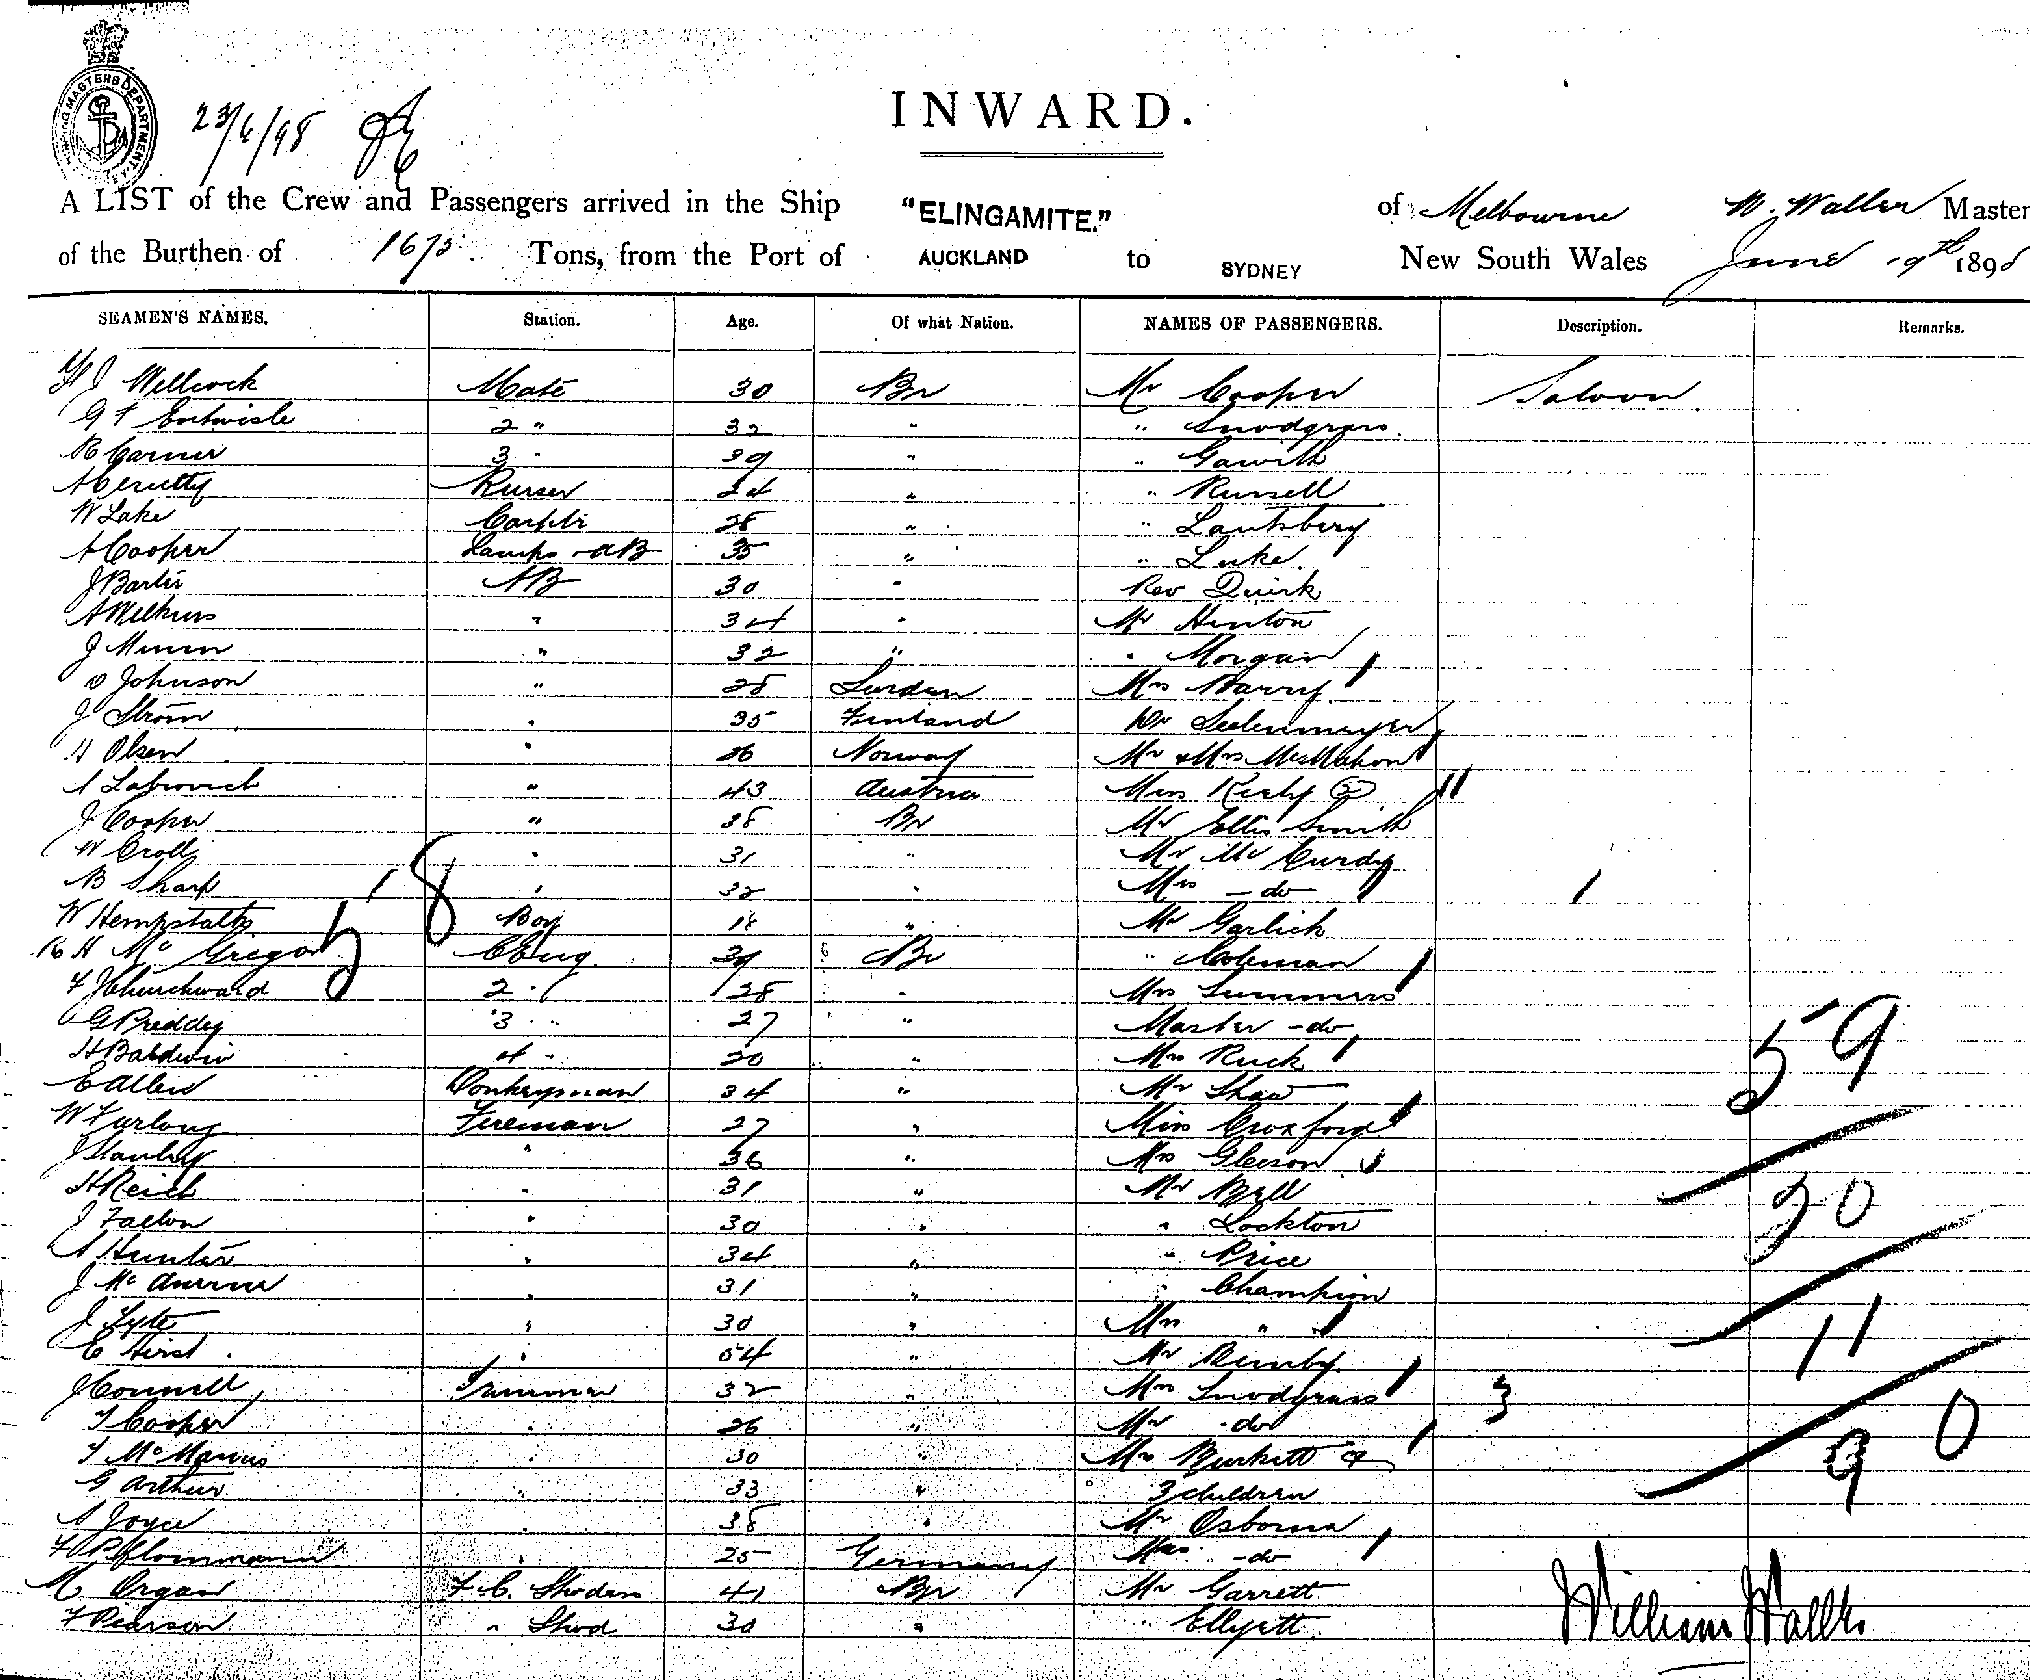 SHIPPING MASTERS DEPARTMENT
23/6/98
INWARD.
A LIST of the Crew and Passengers arrived in the Ship "ELINGAMITE." of Melbourne W. Waller Master
of the Burthen of 1675 Tons, from the Port of AUCKLAND to SYDNEY New South Wales June 19th 1898
SEAMEN'S NAMES. Station. Age. Of what Nation. NAMES OF PASSENGERS. Description. Remarks.
J Wellcock Mate 30 Br Mr Cooper Saloon
G F Entwisle 2 " 32 " " Snodgrass
R Garner 3 " 39 " " Gawith
A Cerutty Purser 24 " " Russell
W Lake Carptr 28 " "
A Cooper Lamps - AB 35 " " Luke
J AB 30 " Rev Quirk
A " 34 " Mr Hinton
J " 32 " " Morgan
Johnson " 28 Mrs
J Strom " 35 Finland Dr
H Olsen " 26 Norway Mr & Mrs McMahon
A " 43 Austria Miss 2
J Cooper " 38 Br Mr Ellis Smith
W Croll " 31 " Mr McCurdy
B Sharp " 32 " Mrs - do
W Hempstalk Boy 18 " Mr Garlick
R H McGregor C Eng 39 Br " Coleman
58
F J Churchward 2 " 28 " Mrs Summers
G Priddey 3 " 27 " Master - do
H Baldwin 4 " 20 " Mrs Ruck
59
E Allen Donkeyman 34 " Mr Shaw
W Furlong Fireman 27 " Miss Croxford
J Stanley " 36 " Mrs Gleeson
H Reid " 31 " Mr Bell
30
J Fallon " 30 " " Lockton
A Hunter " 34 " " Price
J Mc " 31 " " Champion
J " 30 " Mrs "
11
C Hirst " 54 " Mr
J Connell Trimmer 32 " Mrs Snodgrass 3
T Cooper " 26 " Mr - do
90
T McManus " 30 " Mrs Burkett &
G Arthur " 33 " 3 children
A Joyce " 38 " Mr Osborne
F " 25 Germany Mrs - do
M Organ F. C. 41 Br Mr Garrett
F Pearson " 30 " " Ellyett
William Waller